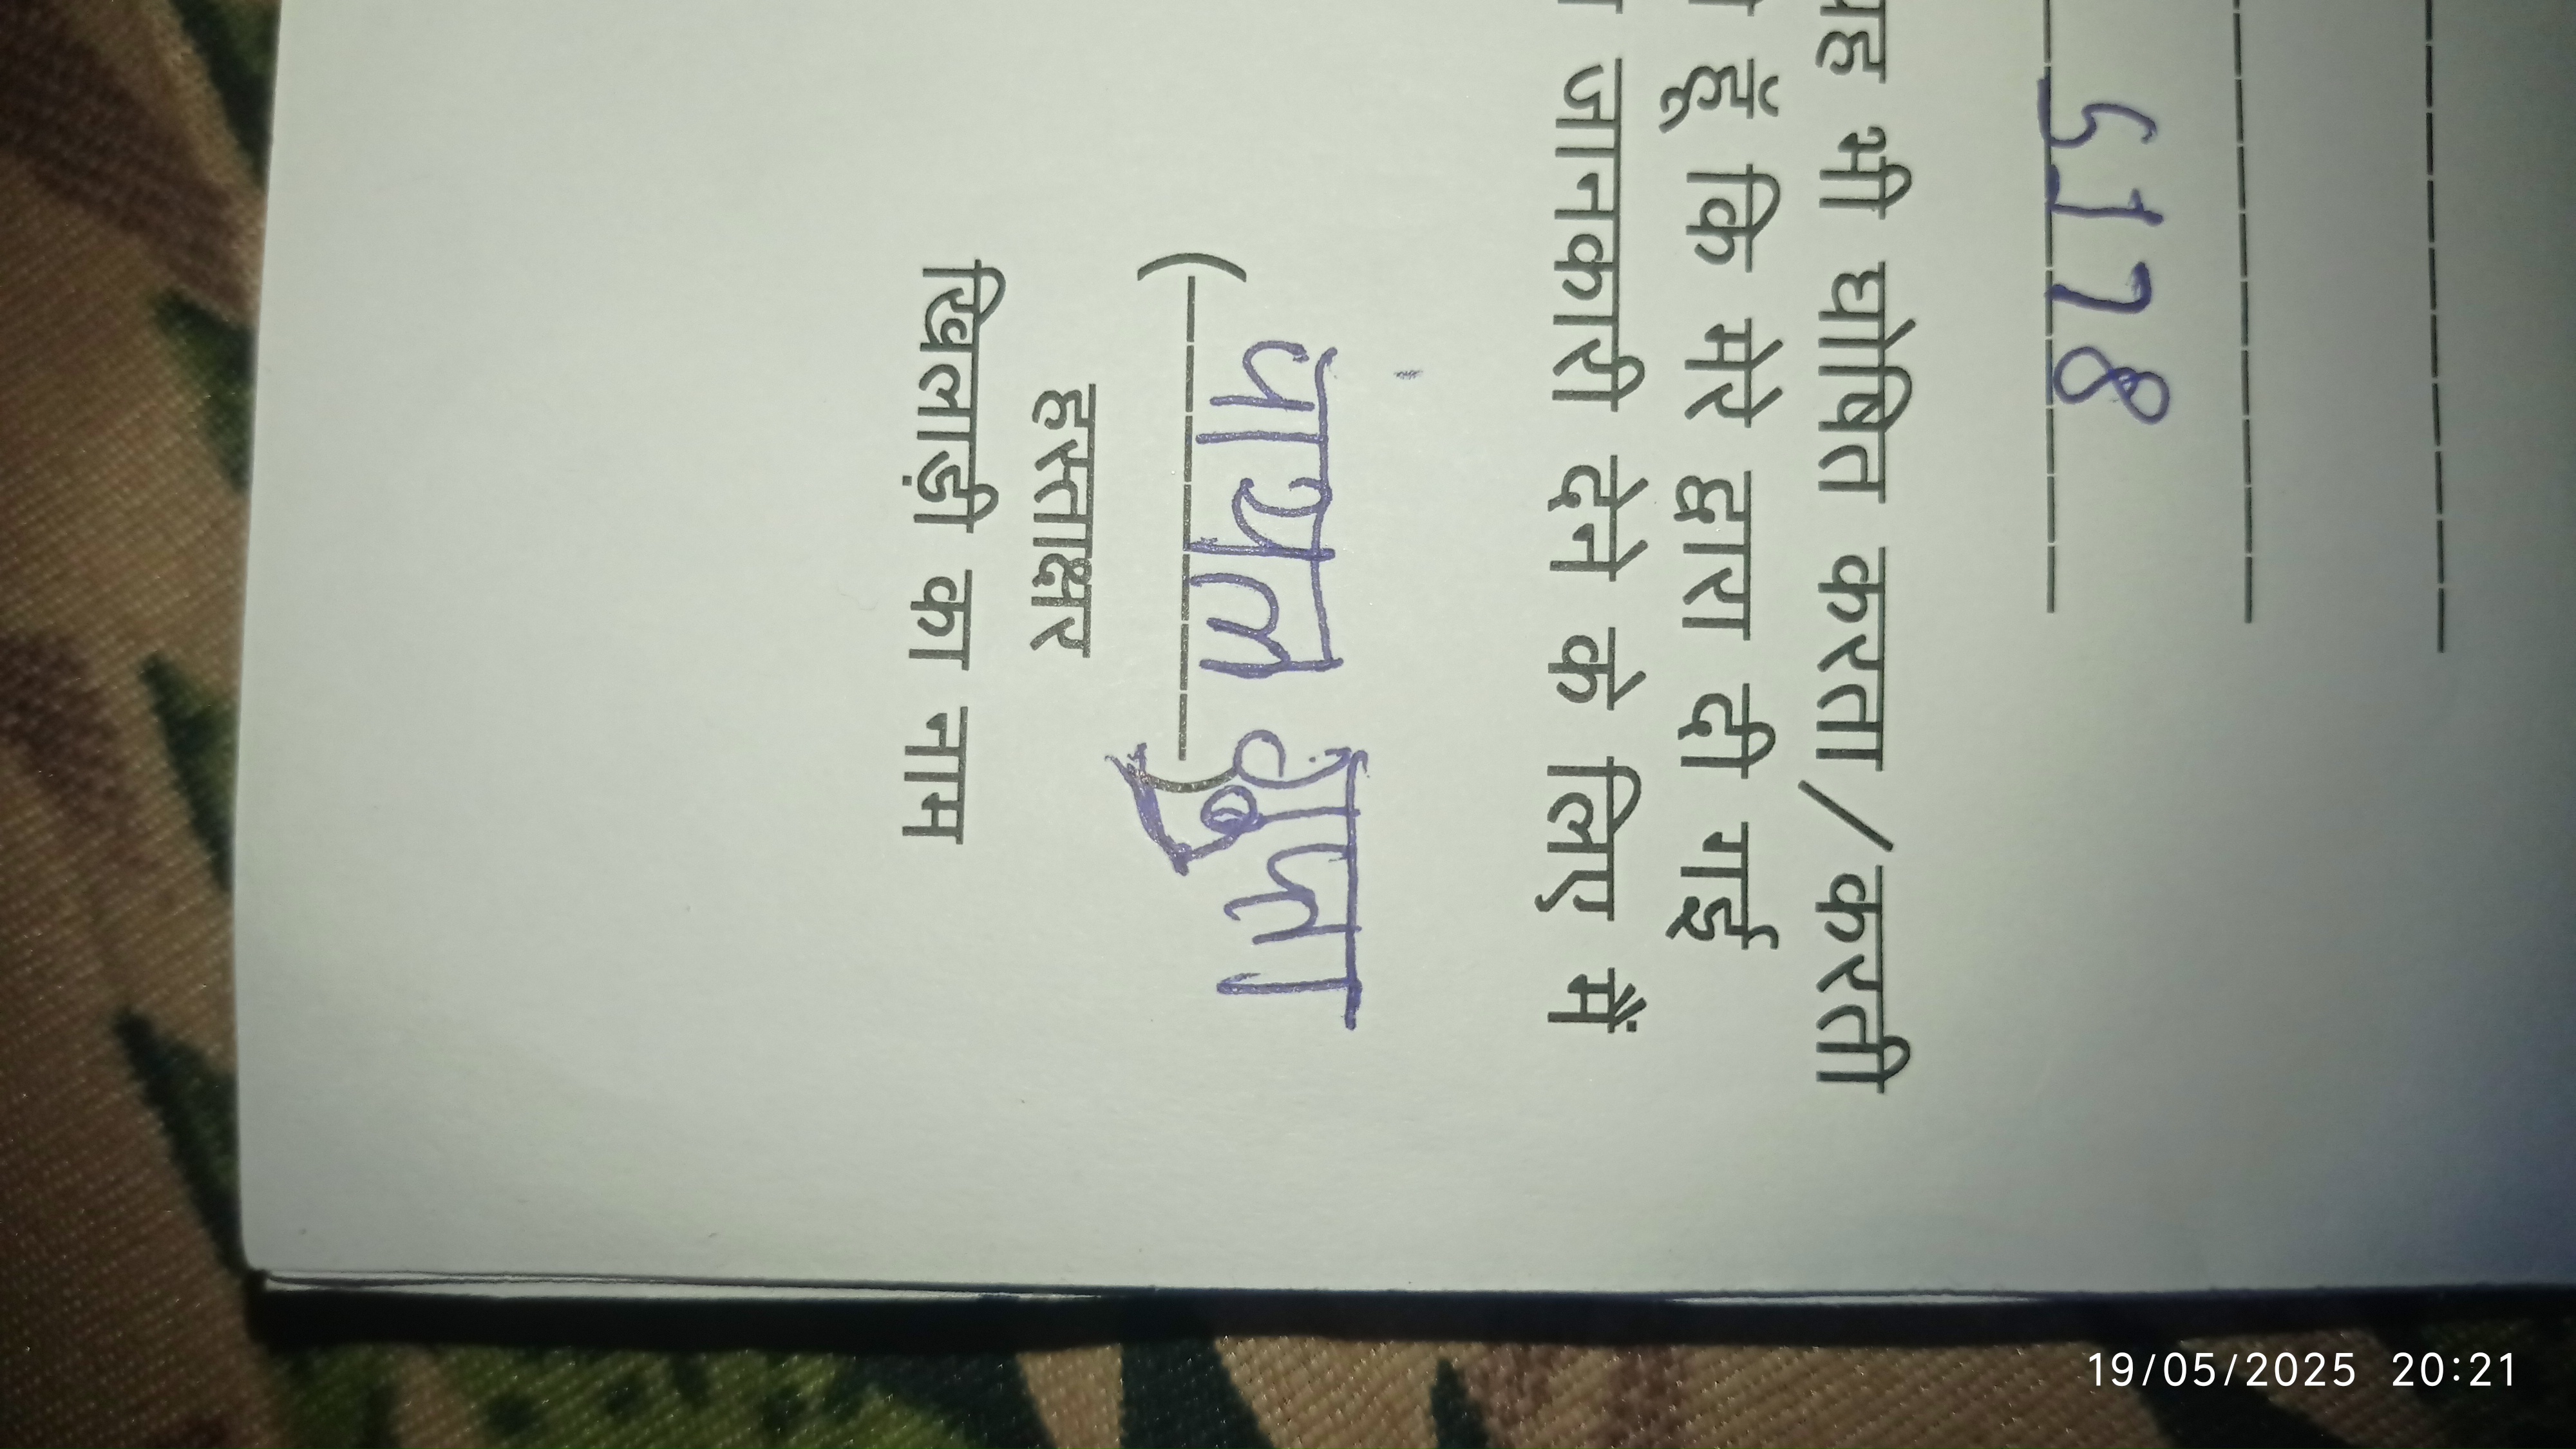 5178
यह भी घोषित करता/करती
हूँ कि मेरे द्वारा दी गई
जानकारी देने के लिए मैं
( गुप्ता )
हस्ताक्षर
खिलाड़ी का नाम
19/05/2025 20:21